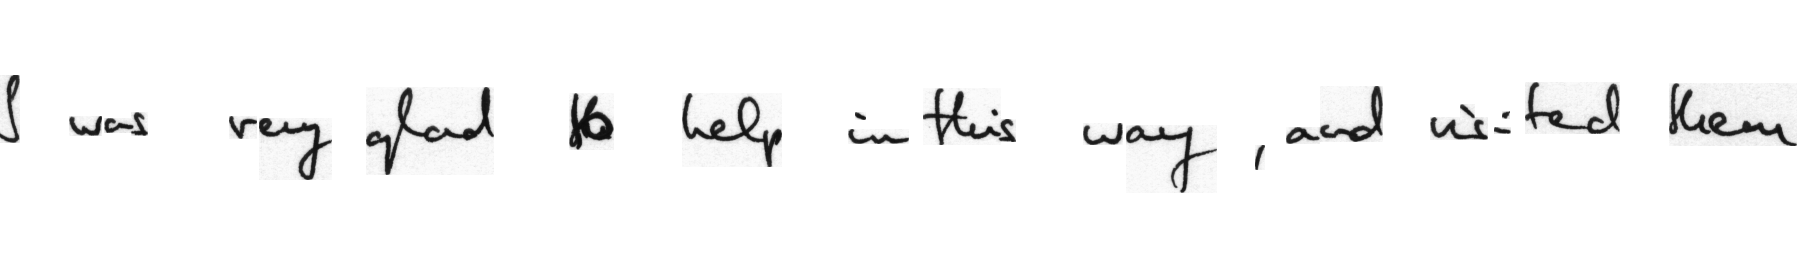 I was very glad to help in this way , and visited them